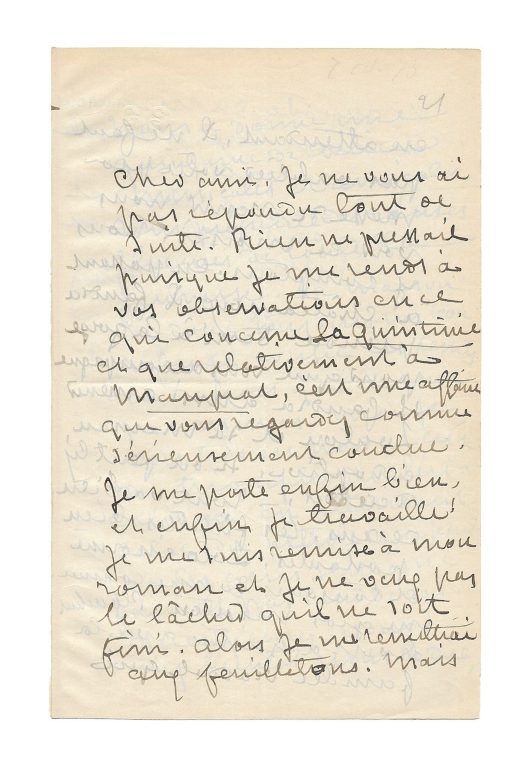 21
Cher ami, je ne vous ai
pas répondu tout de
suite. Rien ne pressait
puisque je me rends à
vos observations en ce
qui concerne La quintinie
et que relativement à
Mauprat, c'est une affaire
que vous regardez comme
sérieusement conclue.
Je me porte enfin bien,
et enfin je travaille!
je me suis remise à mon
roman et je ne veux pas
le lâcher qu'il ne soit
fini. alors je me remettrai
aux feuilletons. Mais